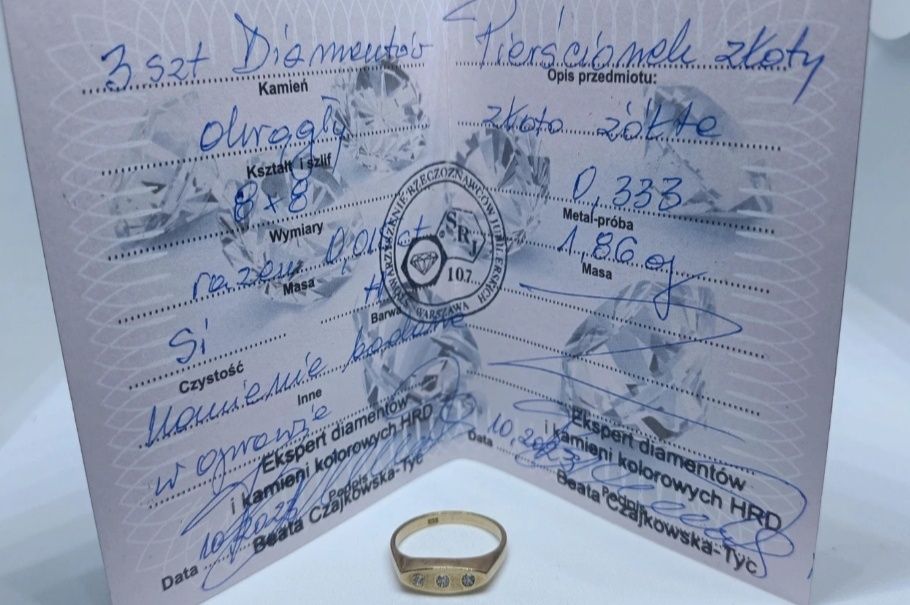 3 szt Diamentów
Kamień
okrągły
Kształt i szlif
8x8
Wymiary
razem
Masa
H
Barwa
Si
Czystość
kamienie badane
Inne
w oprawie
Ekspert diamentów
i kamieni kolorowych HRD
Podpis
Beata Czajkowska-Tyc
Data
10.2023
Pierścionek złoty
Opis przedmiotu:
złoto żółte
0,333
Metal-próba
1,86 g
Masa
Ekspert diamentów
i kamieni kolorowych HRD
Data
10.2023
Podpis
Beata Czajkowska-Tyc
STOWARZYSZENIE RZECZOZNAWCÓW JUBILERSKICH
SRJ
107
WARSZAWA